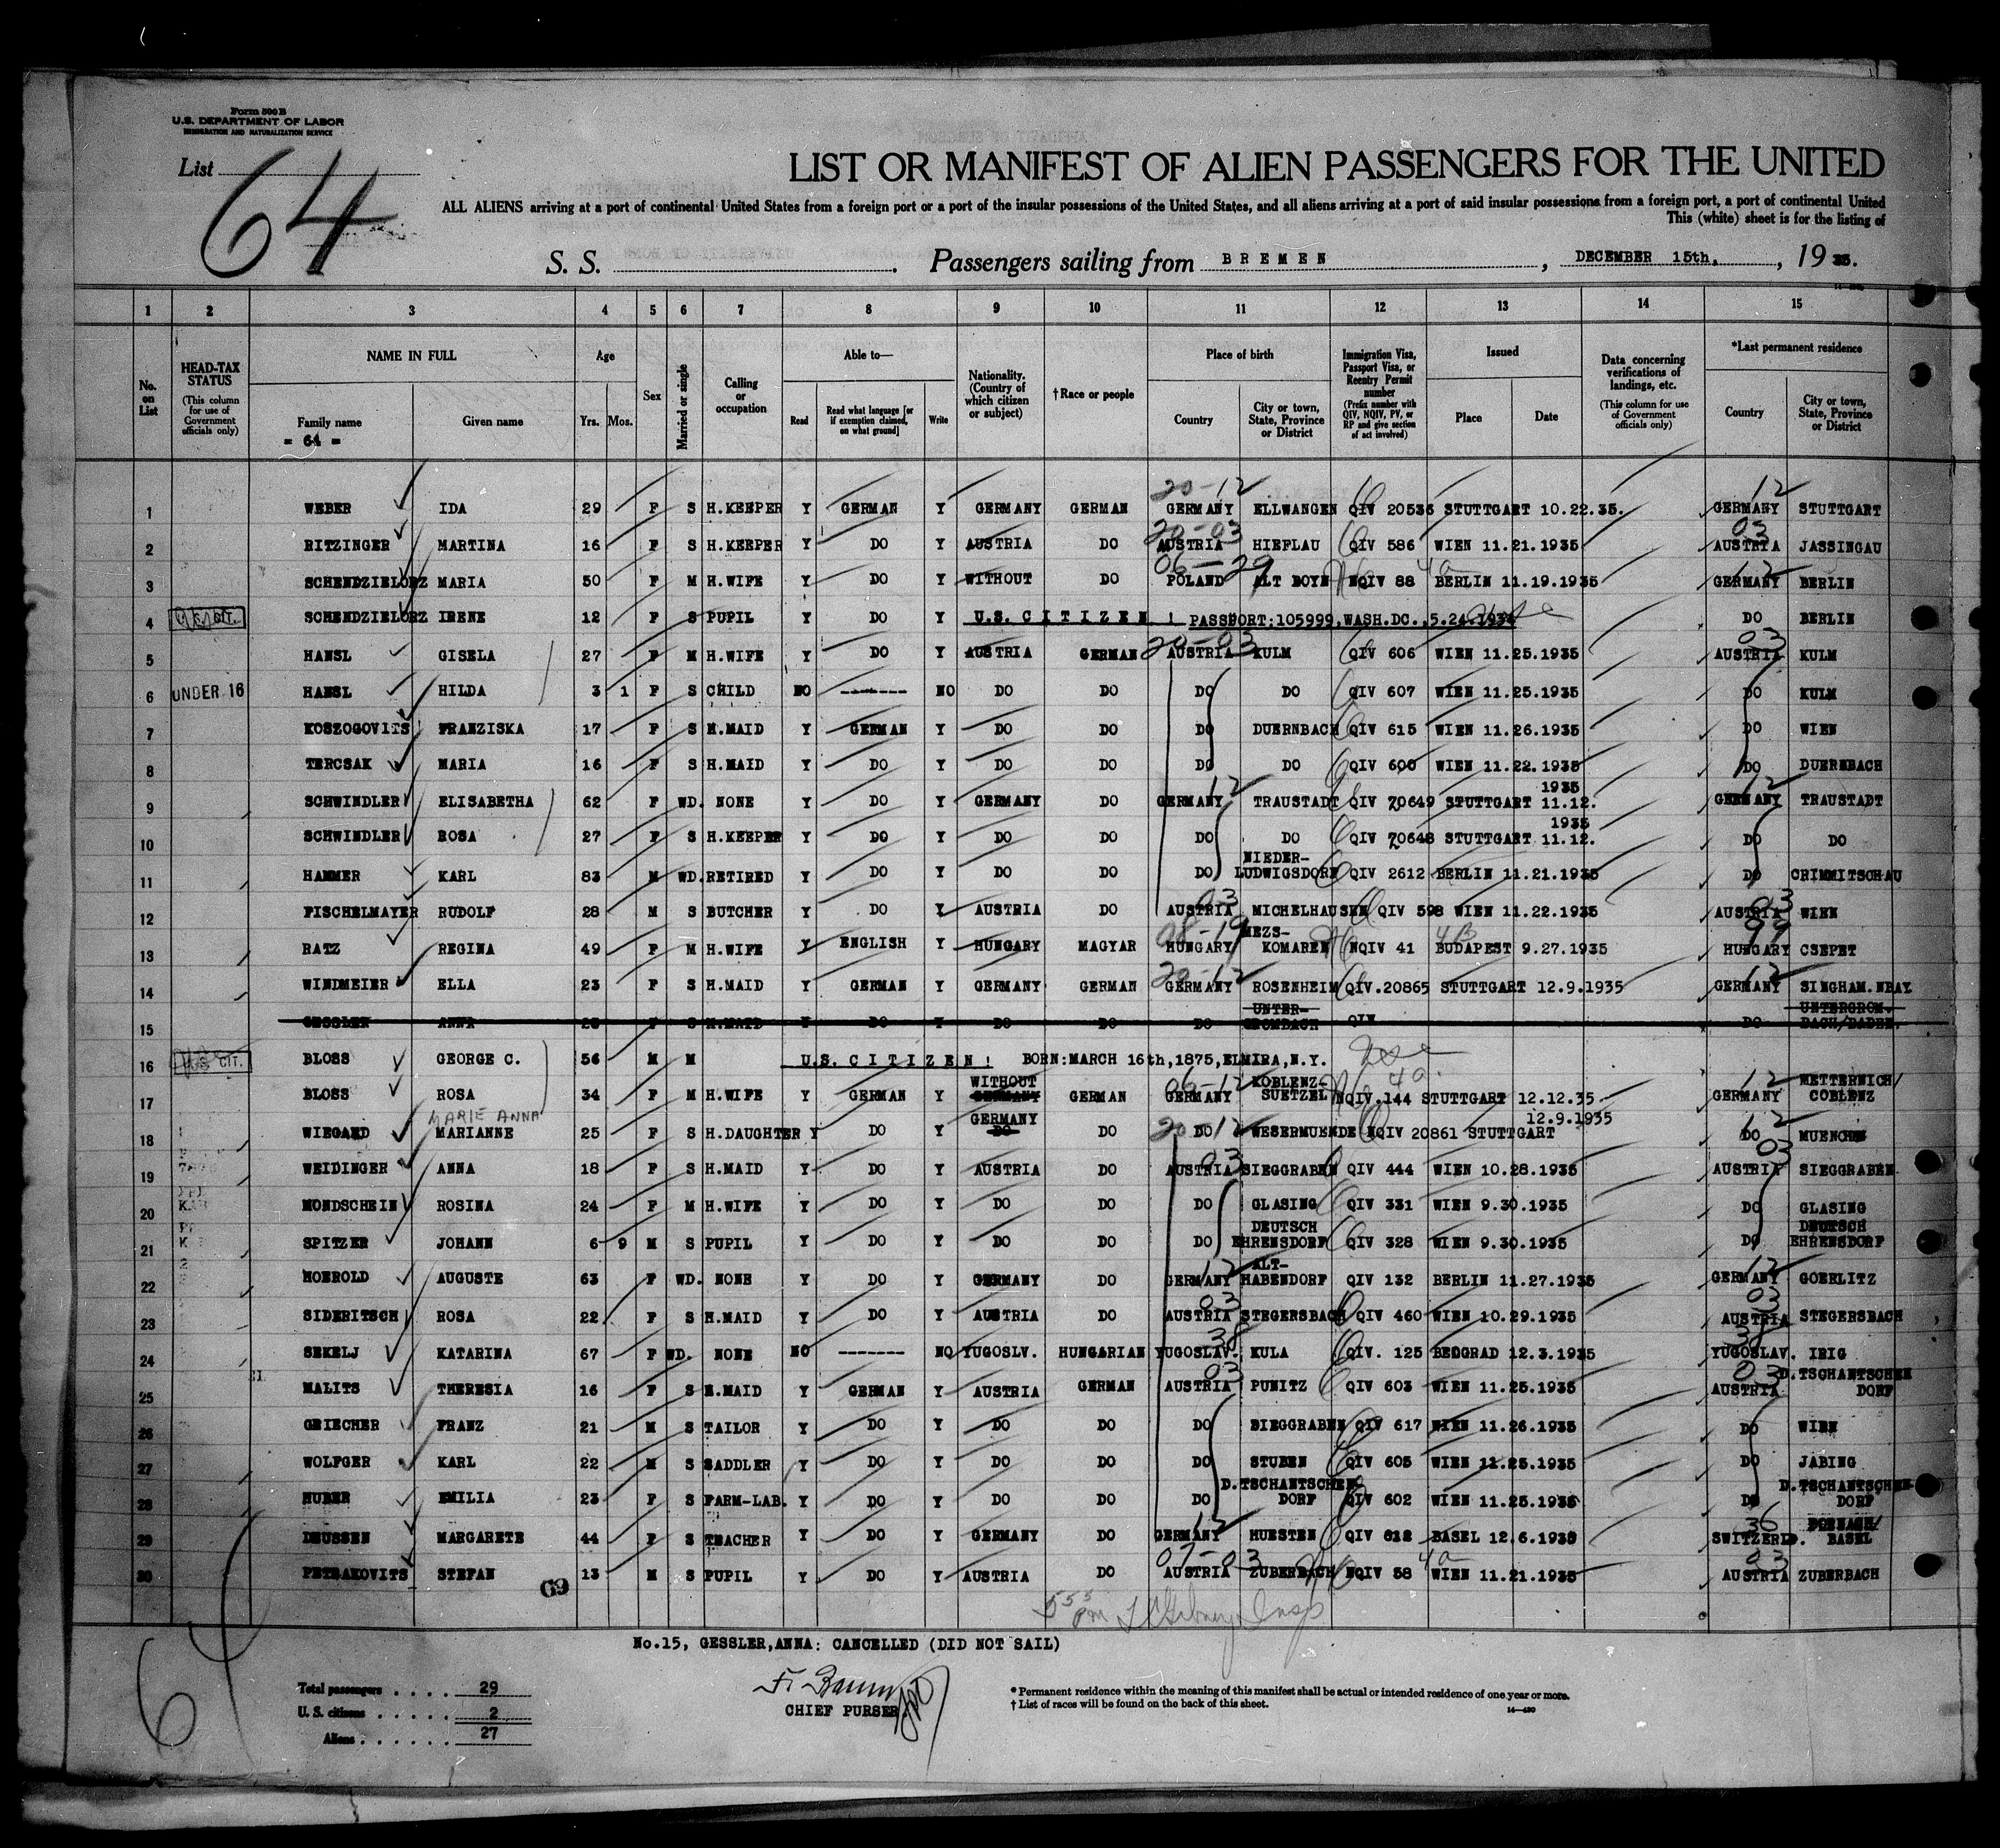 Form 500 B
U.S. DEPARTMENT OF LABOR
IMMIGRATION AND NATURALIZATION SERVICE
List 64
LIST OR MANIFEST OF ALIEN PASSENGERS FOR THE UNITED
ALL ALIENS arriving at a port of continental United States from a foreign port or a port of the insular possessions of the United States, and all aliens arriving at a port of said insular possessions from a foreign port, a port of continental United
This (white) sheet is for the listing of
S. S. Passengers sailing from BREMEN, DECEMBER 15th, 1935.
1 2 3 4 5 6 7 8 9 10 11 12 13 14 15
No. on List
HEAD-TAX STATUS (This column for use of Government officials only)
NAME IN FULL Family name Given name
= 64 =
Age Yrs. Mos.
Sex
Married or single
Calling or occupation
Able to— Read Read what language [or if exemption claimed, on what ground] Write
Nationality. (Country of which citizen or subject)
†Race or people
Place of birth Country City or town, State, Province or District
Immigration Visa, Passport Visa, or Reentry Permit number (Prefix number with QIV, NQIV, PV, or RP and give section of act involved)
Issued Place Date
Data concerning verifications of landings, etc. (This column for use of Government officials only)
*Last permanent residence Country City or town, State, Province or District
20-12 12
1 WEBER IDA 29 F S H.KEEPER Y GERMAN Y GERMANY GERMAN GERMANY ELLWANGEN QIV 20536 STUTTGART 10.22.35. GERMANY STUTTGART
20-03 03
2 RITZINGER MARTINA 16 F S H.KEEPER Y DO Y AUSTRIA DO AUSTRIA HIEFLAU QIV 586 WIEN 11.21.1935 AUSTRIA JASSINGAU
06-29 4a 12
3 SCHENDZIELORZ MARIA 50 F M H.WIFE Y DO Y WITHOUT DO POLAND ALT BOYN NQIV 88 BERLIN 11.19.1935 GERMANY BERLIN
4 SCHENDZIELORZ IRENE 12 F S PUPIL Y DO Y U.S. CITIZEN ! PASSPORT:105999,WASH.DC.,5.24.1934 DO BERLIN
20-03 03
5 HANSL GISELA 27 F M H.WIFE Y DO Y AUSTRIA GERMAN AUSTRIA KULM QIV 606 WIEN 11.25.1935 AUSTRIA KULM
6 UNDER 16 HANSL HILDA 3 1 F S CHILD NO ------- NO DO DO DO DO QIV 607 WIEN 11.25.1935 DO KULM
7 KOSZOGOVITS FRANZISKA 17 F S H.MAID Y GERMAN Y DO DO DO DUERNBACH QIV 615 WIEN 11.26.1935 DO WIEN
8 TERCSAK MARIA 16 F S H.MAID Y DO Y DO DO DO DO QIV 600 WIEN 11.22.1935 DO DUERNBACH
12 1935 12
9 SCHWINDLER ELISABETHA 62 F WD. NONE Y DO Y GERMANY DO GERMANY TRAUSTADT QIV 70649 STUTTGART 11.12. GERMANY TRAUSTADT
1935
10 SCHWINDLER ROSA 27 F S H.KEEPER Y DO Y DO DO DO DO QIV 70648 STUTTGART 11.12. DO DO
11 HAMMER KARL 83 M WD. RETIRED Y DO Y DO DO DO NIEDER-LUDWIGSDORF QIV 2612 BERLIN 11.21.1935 DO CRIMMITSCHAU
03 03
12 FISCHELMAYER RUDOLF 28 M S BUTCHER Y DO Y AUSTRIA DO AUSTRIA MICHELHAUSEN QIV 598 WIEN 11.22.1935 AUSTRIA WIEN
08-19 4B 99
13 RATZ REGINA 49 F M H.WIFE Y ENGLISH Y HUNGARY MAGYAR HUNGARY MEZS-KOMAREN NQIV 41 BUDAPEST 9.27.1935 HUNGARY CSEPET
20-12 12
14 WINDMEIER ELLA 23 F S H.MAID Y GERMAN Y GERMANY GERMAN GERMANY ROSENHEIM QIV.20865 STUTTGART 12.9.1935 GERMANY SINGHAM.NBAY.
15 GESSLER ANNA 28 F S H.MAID Y DO Y DO DO DO UNTER-GROMBACH QIV DO UNTERGROM-BACH/BADEN.
16 U.S. CIT. BLOSS GEORGE C. 56 M M U.S. CITIZEN! BORN:MARCH 16th,1875,ELMIRA,N.Y.
06-12 4a. 12
17 BLOSS ROSA 34 F M H.WIFE Y GERMAN Y WITHOUT GERMANY GERMAN GERMANY KOBLENZ-SUETZEL NQIV.144 STUTTGART 12.12.35 GERMANY METTERNICH/COBLENZ
MARIE ANNA 20-12 12.9.1935 12
18 WIEGAND MARIANNE 25 F S H.DAUGHTER Y DO Y GERMANY DO DO DO WESERMUENDE NQIV 20861 STUTTGART DO MUENCHE
03 03
19 WEIDINGER ANNA 18 F S H.MAID Y DO Y AUSTRIA DO AUSTRIA SIEGGRABEN QIV 444 WIEN 10.28.1935 AUSTRIA SIEGGRABEN
20 MONDSCHEIN ROSINA 24 F M H.WIFE Y DO Y DO DO DO GLASING QIV 331 WIEN 9.30.1935 DO GLASING
21 SPITZER JOHANN 6 9 M S PUPIL Y DO Y DO DO DO DEUTSCH EHRENSDORF QIV 328 WIEN 9.30.1935 DO DEUTSCH EHRENSDORF
12 12
22 HOEROLD AUGUSTE 63 F WD. NONE Y DO Y GERMANY DO GERMANY ALT-HABENDORF QIV 132 BERLIN 11.27.1935 GERMANY GOERLITZ
03 03
23 SIDERITSCH ROSA 22 F S H.MAID Y DO Y AUSTRIA DO AUSTRIA STEGERSBACH QIV 460 WIEN 10.29.1935 AUSTRIA STEGERSBACH
38 38
24 SEKELJ KATARINA 67 F WD. NONE NO ------- NO YUGOSLV. HUNGARIAN YUGOSLAV. KULA QIV. 125 BEOGRAD 12.3.1935 YUGOSLAV. IRIG
03 03
25 MALITS THERESIA 16 F S H.MAID Y GERMAN Y AUSTRIA GERMAN AUSTRIA PUNITZ QIV 603 WIEN 11.25.1935 AUSTRIA D.TSCHANTSCHEN DORF
26 GRIECHER FRANZ 21 M S TAILOR Y DO Y DO DO DO SIEGGRABEN QIV 617 WIEN 11.26.1935 DO WIEN
27 WOLFGER KARL 22 M S SADDLER Y DO Y DO DO DO STUBEN QIV 605 WIEN 11.25.1935 DO JABING
28 HUBER EMILIA 23 F S FARM-LAB. Y DO Y DO DO DO D.TSCHANTSCHEN DORF QIV 602 WIEN 11.25.1935 DO D.TSCHANTSCHEN DORF
12 36
29 DEUSSEN MARGARETE 44 F S TEACHER Y DO Y GERMANY DO GERMANY HUESTEN QIV 612 BASEL 12.6.1935 SWITZERLD. BASEL
07-03 4a 03
30 PETRAKOVITS STEFAN 13 M S PUPIL Y DO Y AUSTRIA DO AUSTRIA ZUBERBACH NQIV 58 WIEN 11.21.1935 AUSTRIA ZUBERBACH
69
5 55 pm Insp
No.15, GESSLER,ANNA: CANCELLED (DID NOT SAIL)
Total passengers . . . . 29
U. S. citizens . . . . . 2
Aliens . . . . . . 27
CHIEF PURSER
* Permanent residence within the meaning of this manifest shall be actual or intended residence of one year or more.
† List of races will be found on the back of this sheet.
14—430
64